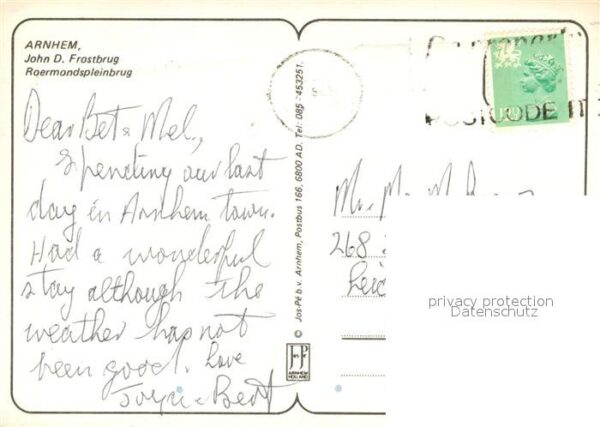 ARNHEM,
John D. Frostbrug
Roermondspleinbrug
Dear Bet & Mel,
Spending our last
day in Arnhem town.
Had a wonderful
stay although the
weather has not
been good. Love
Bert
© Jos-Pé b.v. Arnhem, Postbus 166, 6800 AD. Tel: 085 - 453251.
ARNHEM
HOLLAND
POSTCODE IT
Mr. M.
268
Leic
privacy protection
Datenschutz